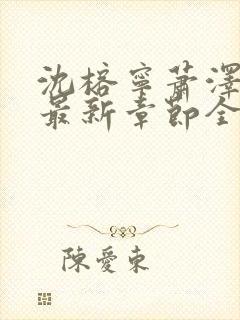 沈榕寧蕭澤
最新章節全
陳愛東